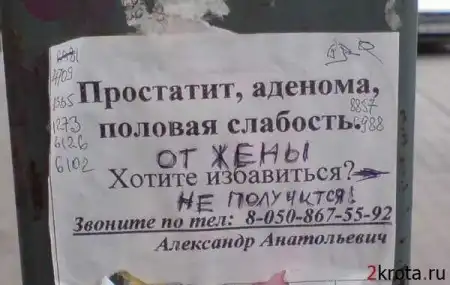 6102
1709
1365
1273
6126
6102
Простатит, аденома,
половая слабость.
8857
6988
ОТ ЖЕНЫ
Хотите избавиться?
НЕ ПОЛУЧИТСЯ!
Звоните по тел: 8-050-867-55-92
Александр Анатольевич
2krota.ru